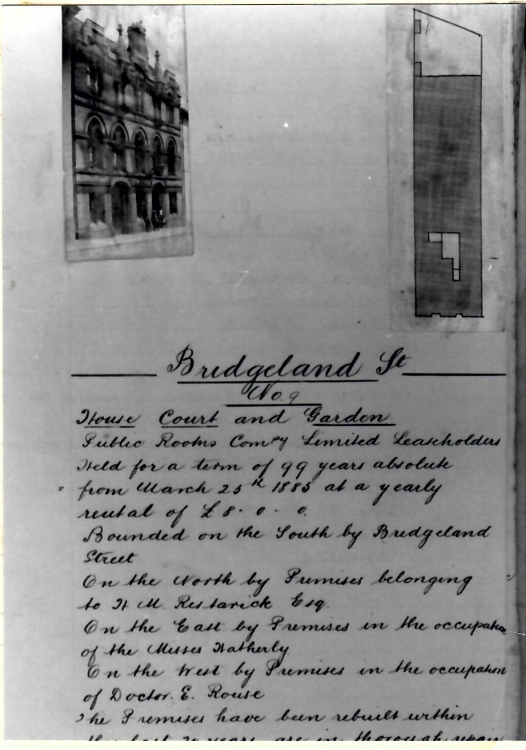 Bridgeland St
No. 9
House Court and Garden
Public Rooms Comny Limited Leaseholders
Held for a term of 99 years absolute
from March 25th 1885 at a yearly
rental of £8. 0. 0.
Bounded on the South by Bridgeland
Street
On the North by Premises belonging
to H M. Restarick Esq.
On the East by Premises in the occupation
of the Misses Hatherly
On the West by Premises in the occupation
of Doctor. E. Rouse
The Premises have been rebuilt within
the last 20 years are in thorough repair